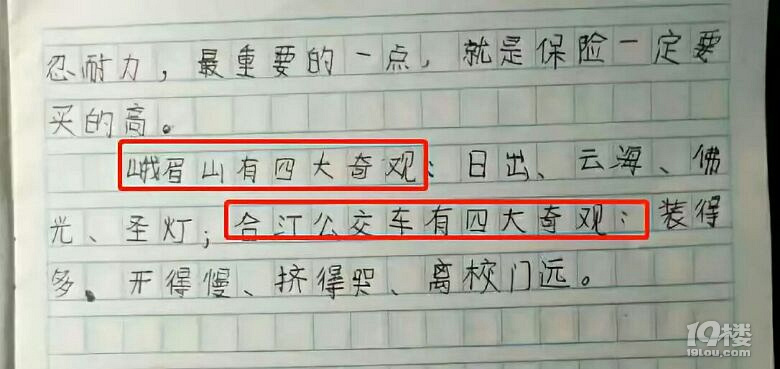 忍耐力，最重要的一点，就是保险一定要
买的高。
峨眉山有四大奇观：日出、云海、佛
光、圣灯；合江公交车有四大奇观：装得
多、开得慢、挤得哭、离校门远。
19楼
19lou.com